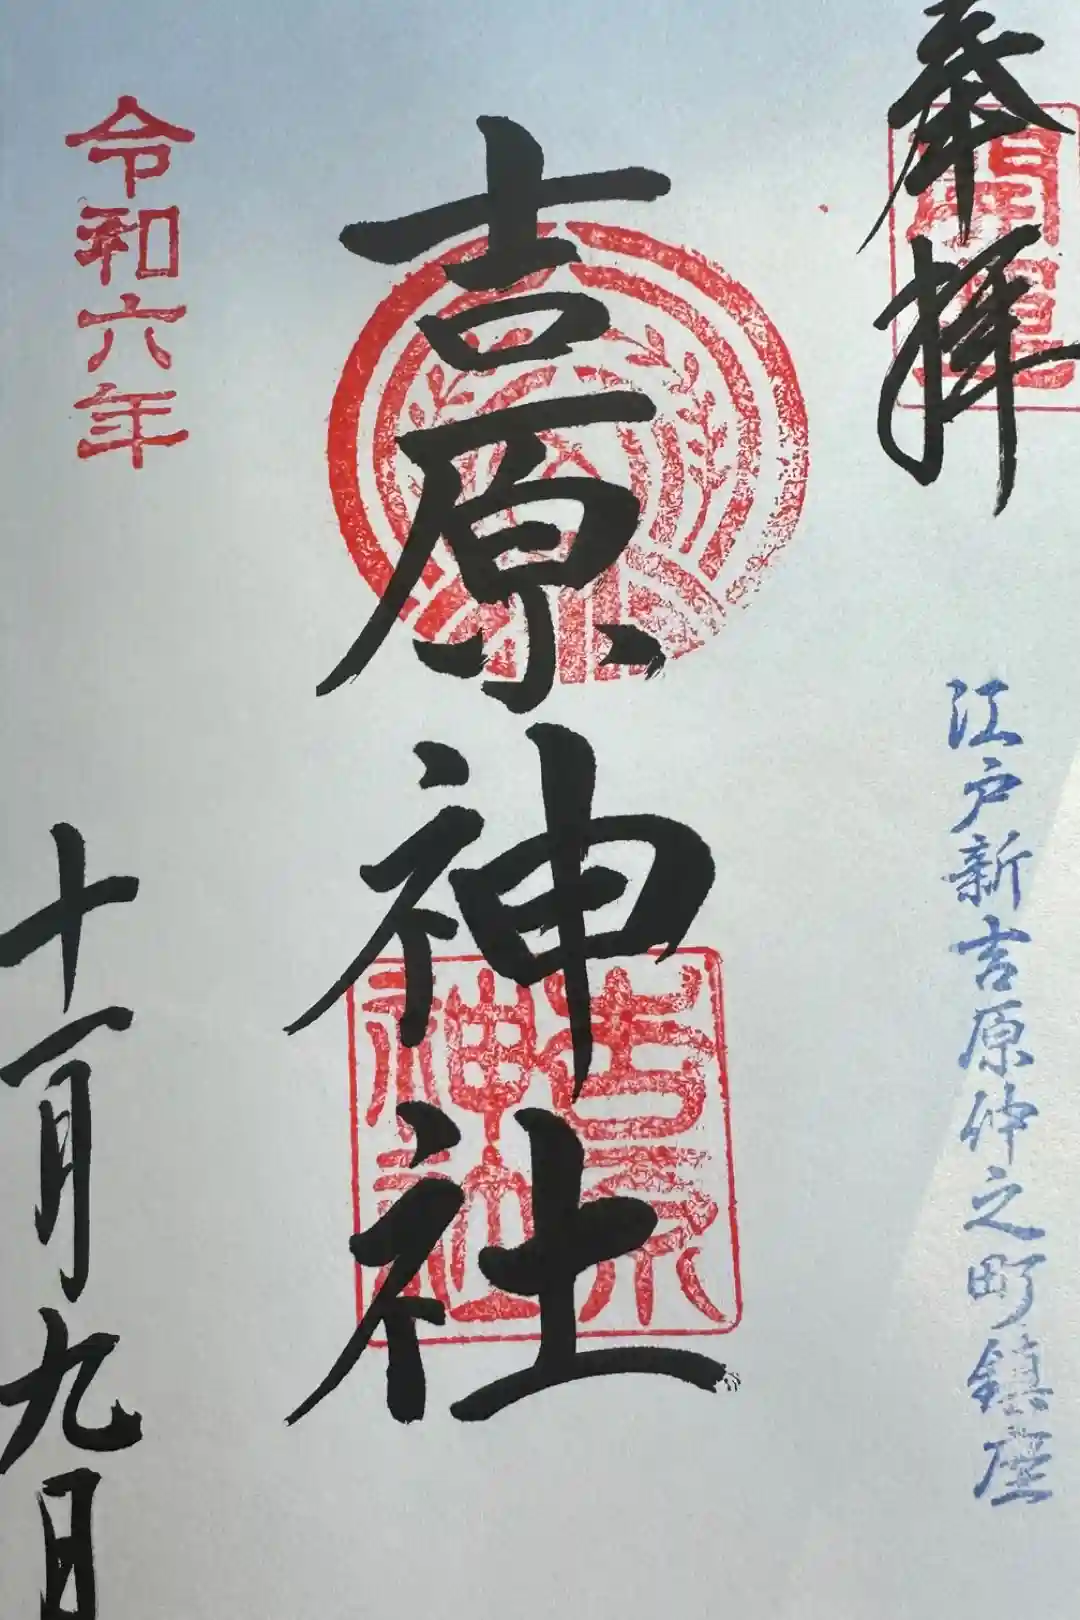 奉拝
江戸新吉原仲之町鎮座
吉原神社
吉原
神社
令和六年
十一月九日